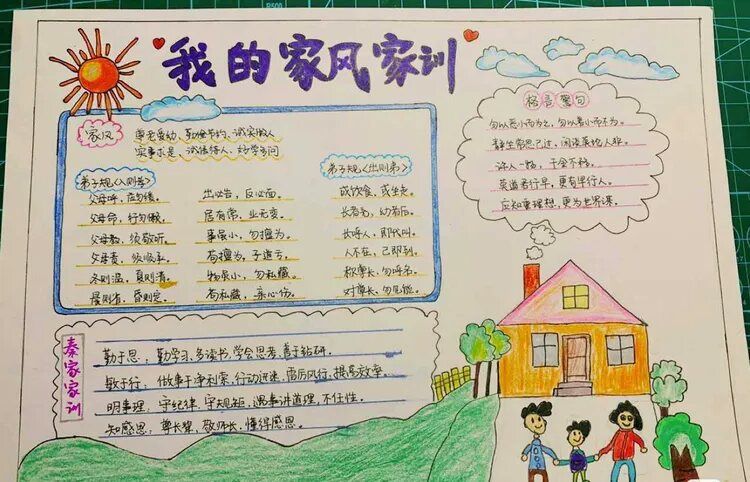 我的家风家训
家风
尊老爱幼、勤俭节约、诚实做人
实事求是、诚信待人、好学多问
弟子规《入则孝》
父母呼，应勿缓。
父母命，行勿懒。
父母教，须敬听。
父母责，须顺承。
冬则温，夏则凊。
晨则省，昏则定。
出必告，反必面。
居有常，业无变。
事虽小，勿擅为。
苟擅为，子道亏。
物虽小，勿私藏。
苟私藏，亲心伤。
弟子规《出则弟》
或饮食，或坐走。
长者先，幼者后。
长呼人，即代叫。
人不在，己即到。
称尊长，勿呼名。
对尊长，勿见能。
格言警句
勿以恶小而为之，勿以善小而不为。
静坐常思己过，闲谈莫论人非。
许人一物，千金不移。
莫道君行早，更有早行人。
应知重理想，更为世界谋。
秦家家训
勤于思，勤学习、多读书、学会思考、善于钻研。
敏于行：做事干净利索，行动迅速，雷厉风行，提高效率。
明事理，守纪律，守规矩，遇事讲道理，不任性。
知感恩，尊长辈，敬师长，懂得感恩。